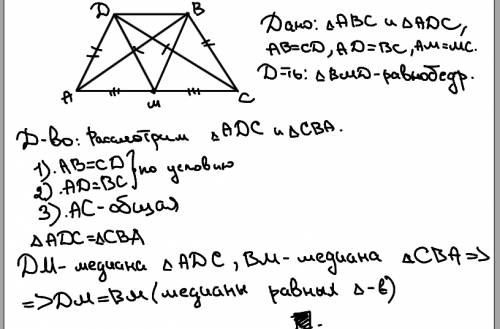 D B
A M C
Дано: △ABC и △ADC,
AB=CD, AD=BC, AM=MC.
Д-ть: △BMD-равнобедр.
Д-во: Рассмотрим △ADC и △CBA.
1). AB=CD } по условию
2). AD=BC
3). AC-общая
△ADC=△CBA
DM- медиана △ADC, BM- медиана △CBA =>
=> DM=BM (медианы равных △-в)